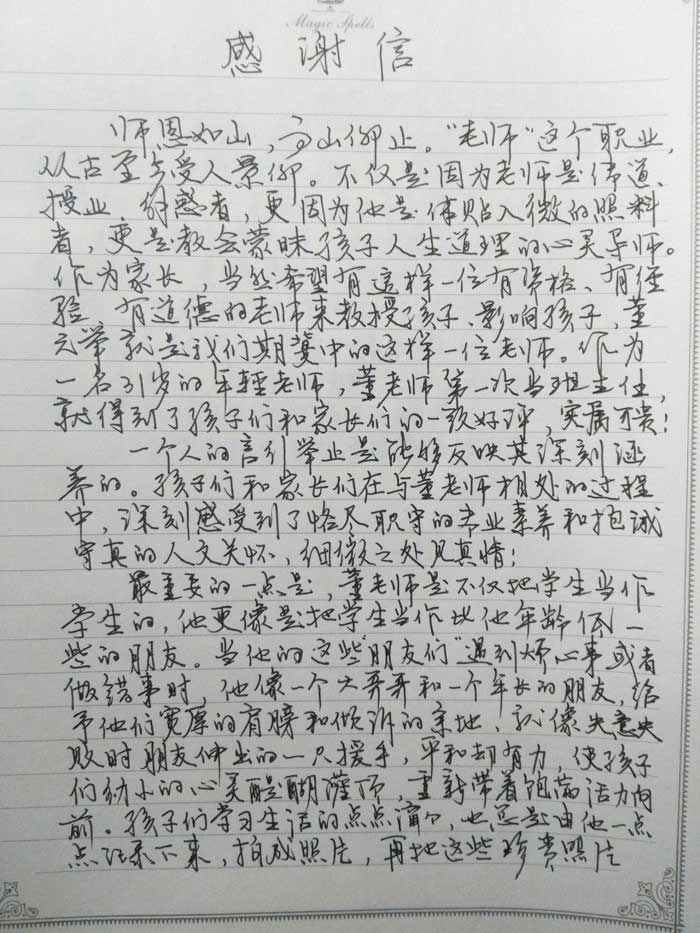 Magic Spells
感谢信
师恩如山，高山仰止。“老师”这个职业，
从古至今受人景仰。不仅是因为老师是传道、
授业、解惑者，更因为他是体贴入微的照料
者，更是教会蒙昧孩子人生道理的心灵导师。
作为家长，当然希望有这样一位有资格、有经
验、有道德的老师来教授孩子、影响孩子，董
元举就是我们期望中的这样一位老师。作为
一名31岁的年轻老师，董老师第一次当班主任，
就得到了孩子们和家长们的一致好评，实属可贵！
一个人的言引举止是能够反映其深刻涵
养的。孩子们和家长们在与董老师相处的过程
中，深刻感受到了恪尽职守的专业素养和抱诚
守真的人文关怀，细微之处见真情！
最重要的一点是，董老师是不仅把学生当作
学生的，他更像是把学生当作比他年龄低一
些的朋友。当他的这些“朋友们”遇到烦心事或者
做错事时，他像一个大哥哥和一个年长的朋友，给
予他们宽厚的肩膀和倾诉的余地、就像失意失
败时朋友伸出的一只援手，平和却有力，使孩子
们幼小的心灵醍醐灌顶，重新带着饱满活力向
前。孩子们学习生活的点点滴滴，也总是由他一点
点记录下来，拍成照片，再把这些珍贵照片